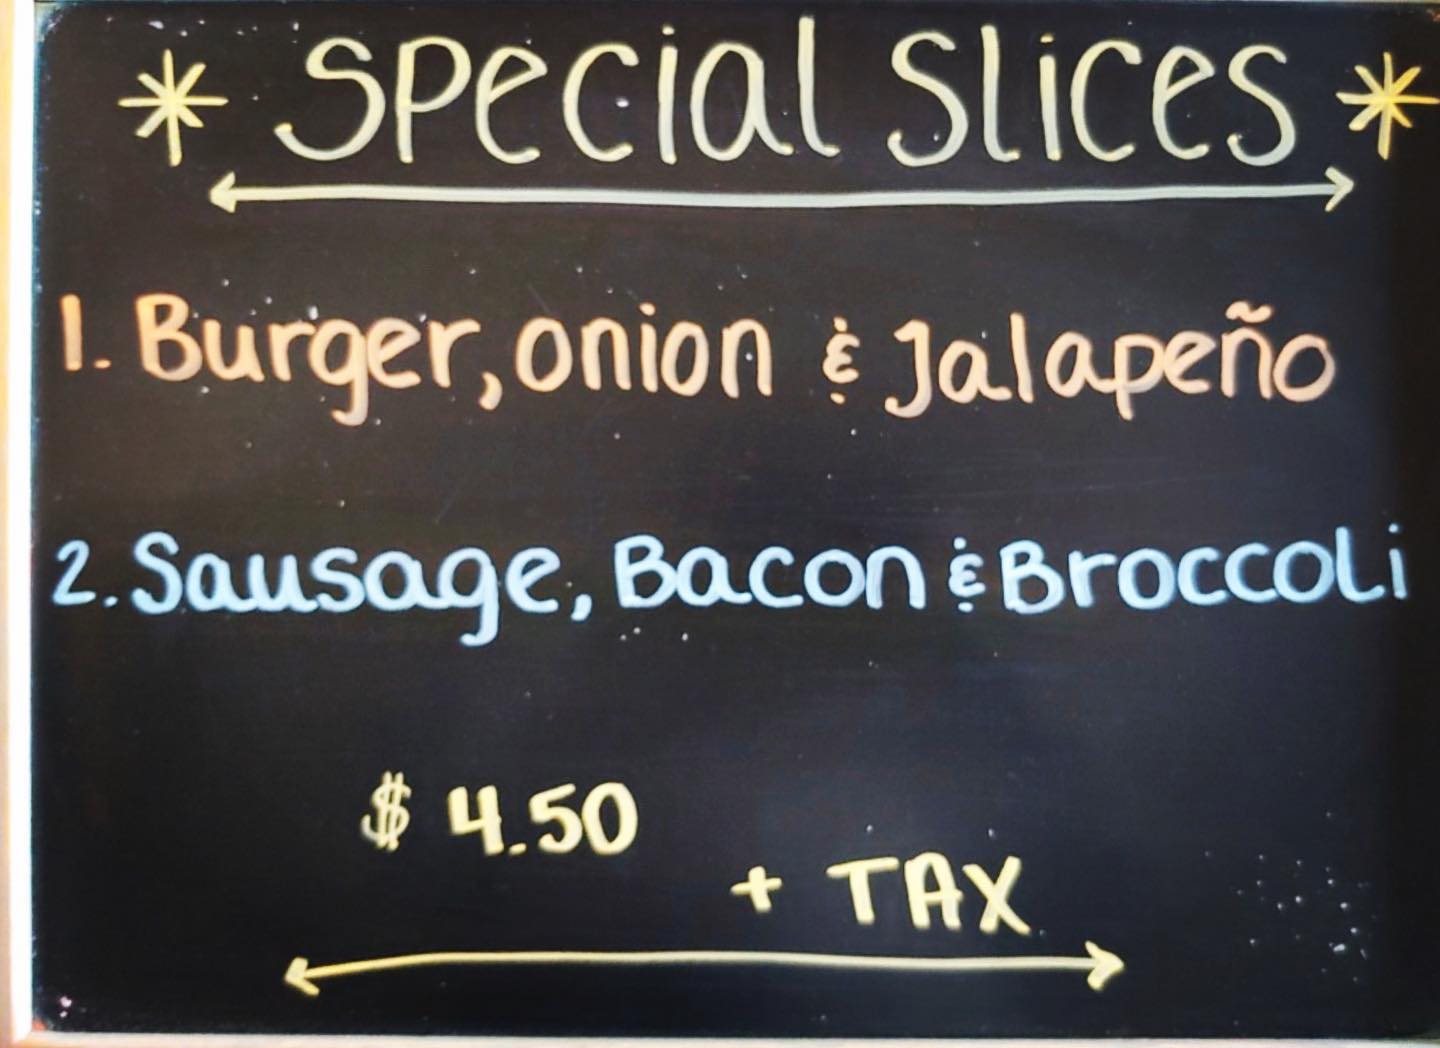 * Special Slices *
1. Burger, onion & Jalapeño
2. Sausage, Bacon & Broccoli
$ 4.50
+ TAX